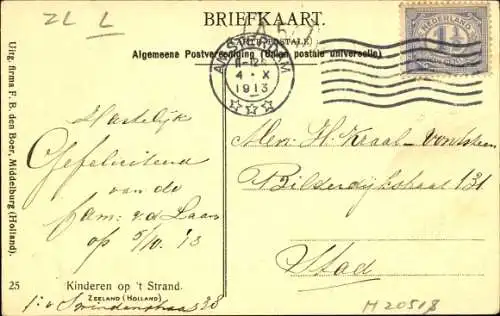 ZL L
BRIEFKAART.
Algemeene Postvereeniging (Union postale universelle)
AMSTERDAM
4 · X
1913
NEDERLAND
Uitg. firma F. B. den Boer, Middelburg (Holland).
Hartelijk
Gefeliciteerd
van de
fam: v.d. Laan
op 5/10 '13
Mevr: H. Kraal-
Bilderdijkstraat 131
Stad
25 Kinderen op 't Strand.
ZEELAND (HOLLAND)
1e v Swindenstraat 38
M 20518